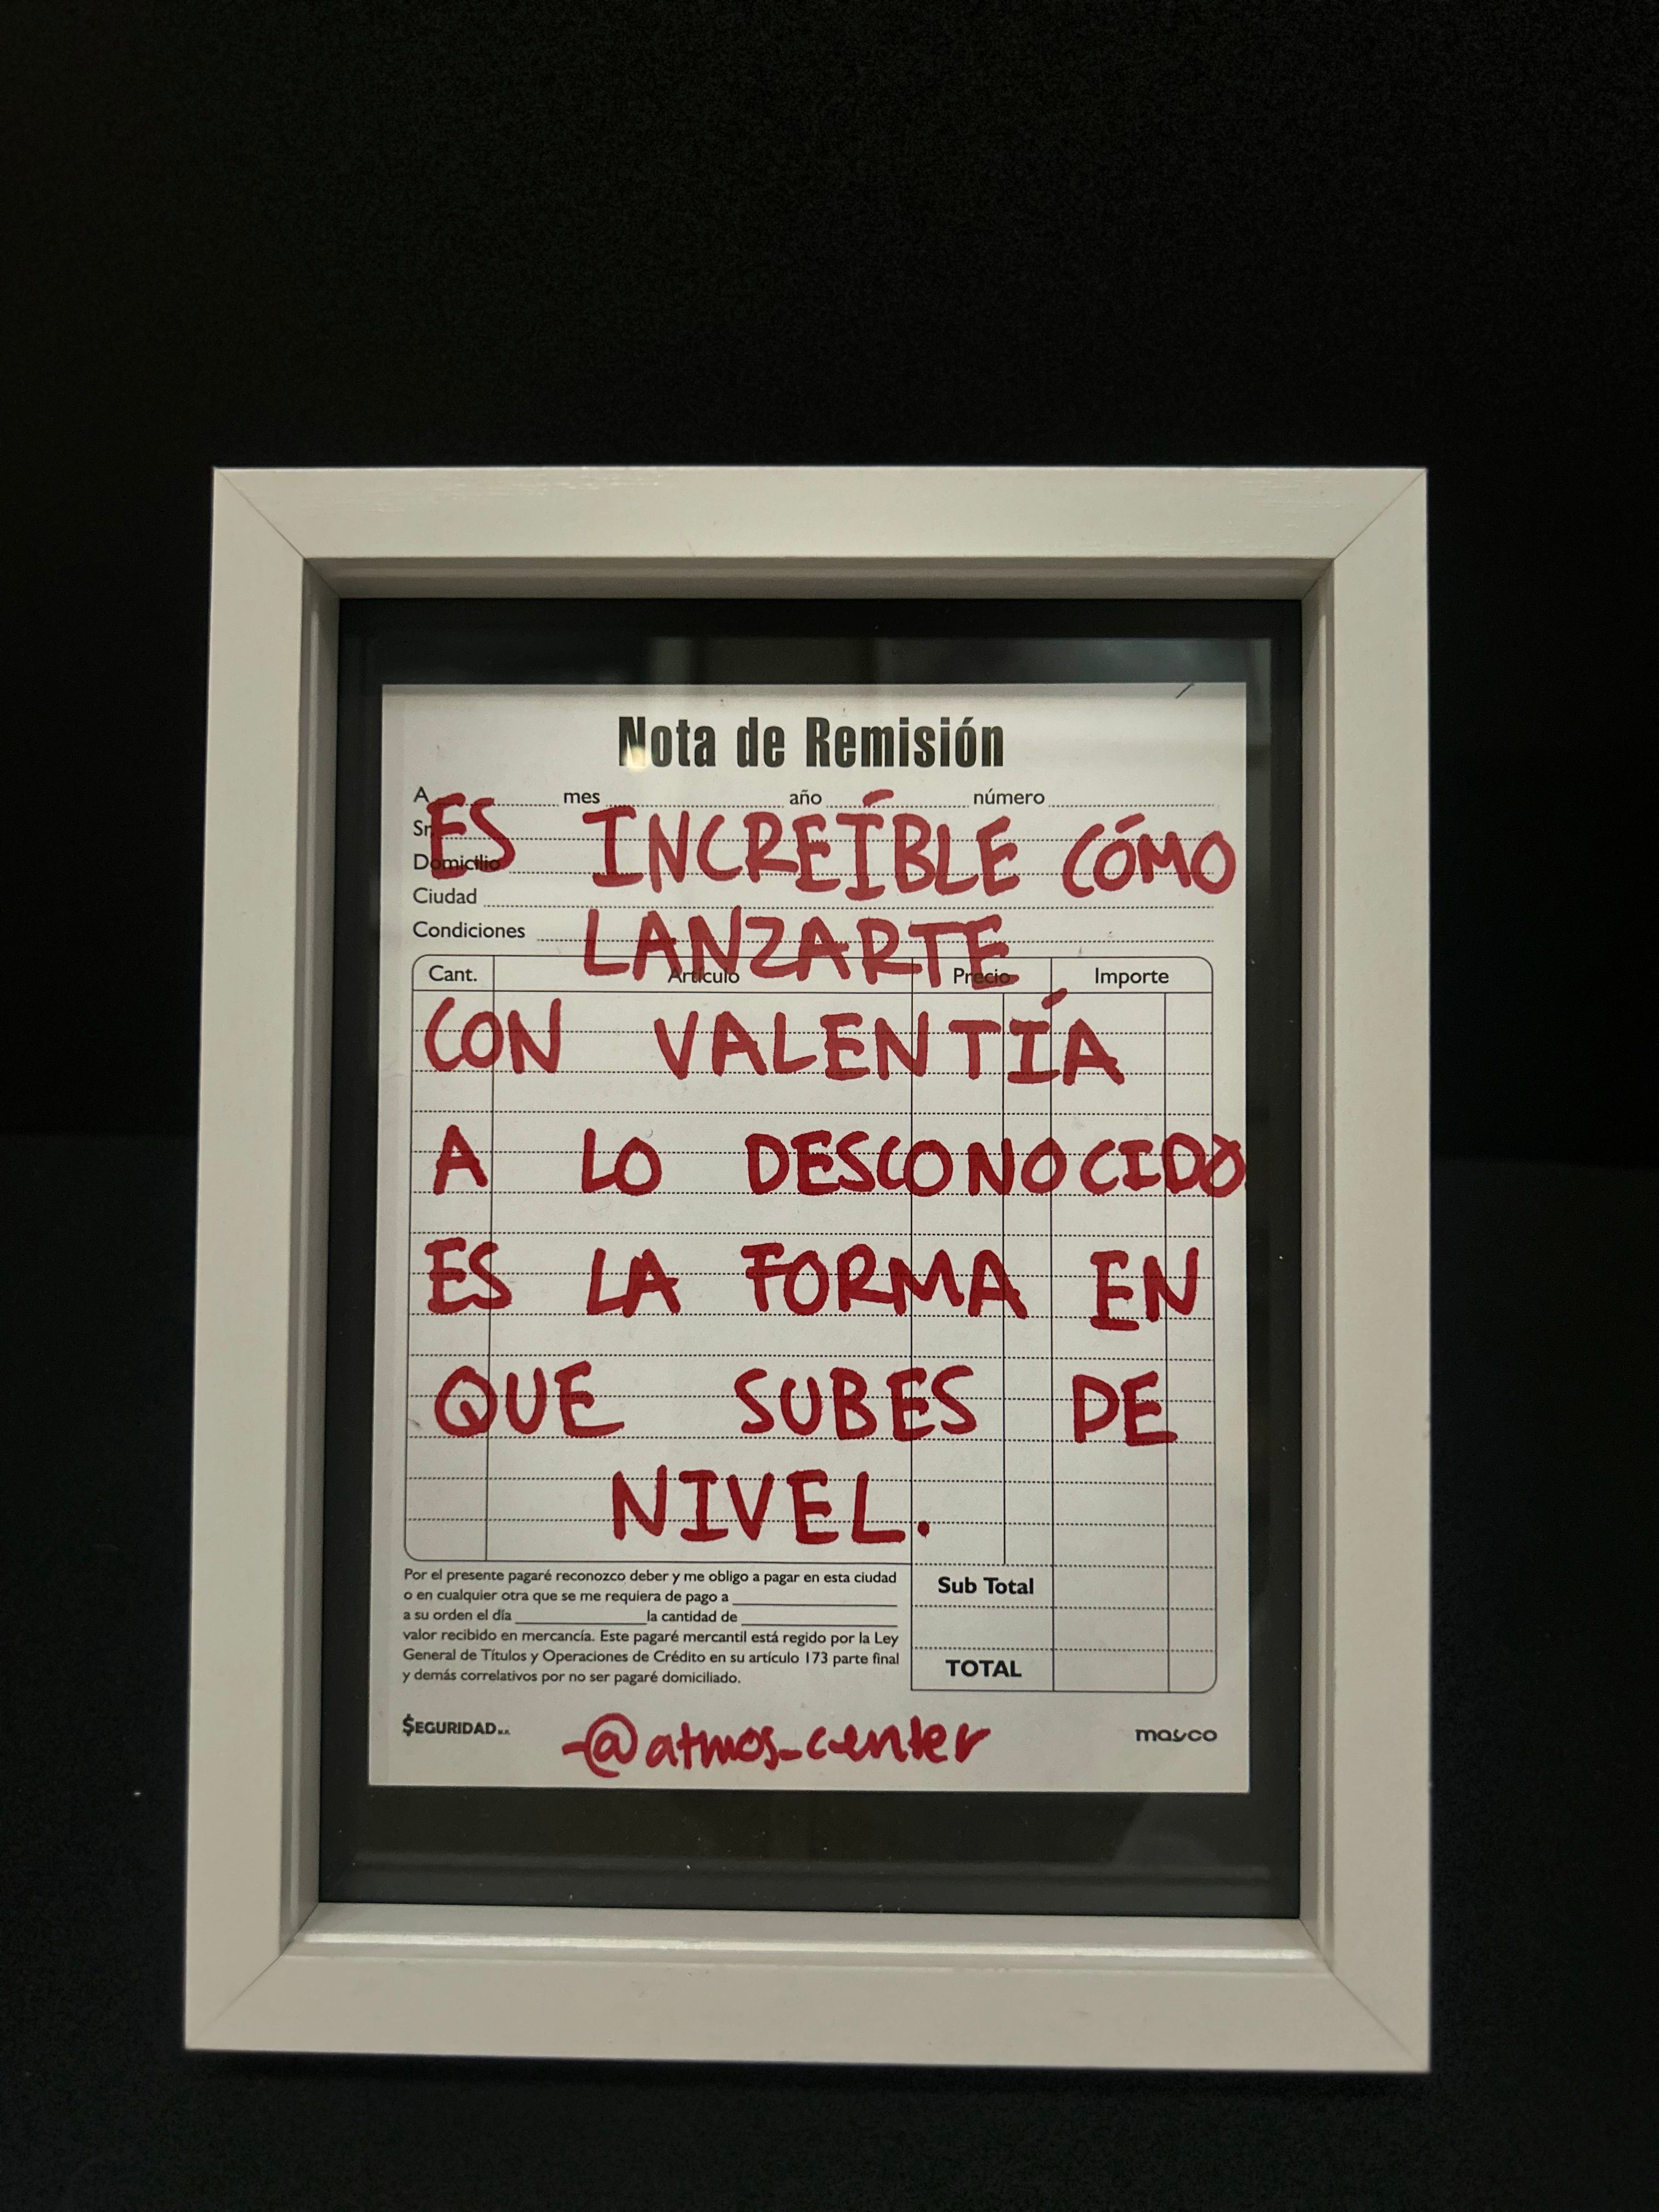 Nota de Remisión
A mes año número
Sr.
ES INCREÍBLE CÓMO
Domicilio
Ciudad
LANZARTE
Condiciones
Cant. Artículo Precio Importe
CON VALENTÍA
A LO DESCONOCIDO
ES LA FORMA EN
QUE SUBES DE
NIVEL.
Por el presente pagaré reconozco deber y me obligo a pagar en esta ciudad
o en cualquier otra que se me requiera de pago a
a su orden el día la cantidad de
valor recibido en mercancía. Este pagaré mercantil está regido por la Ley
General de Títulos y Operaciones de Crédito en su artículo 173 parte final
y demás correlativos por no ser pagaré domiciliado.
Sub Total
TOTAL
$EGURIDAD
-@atmos_center
masco